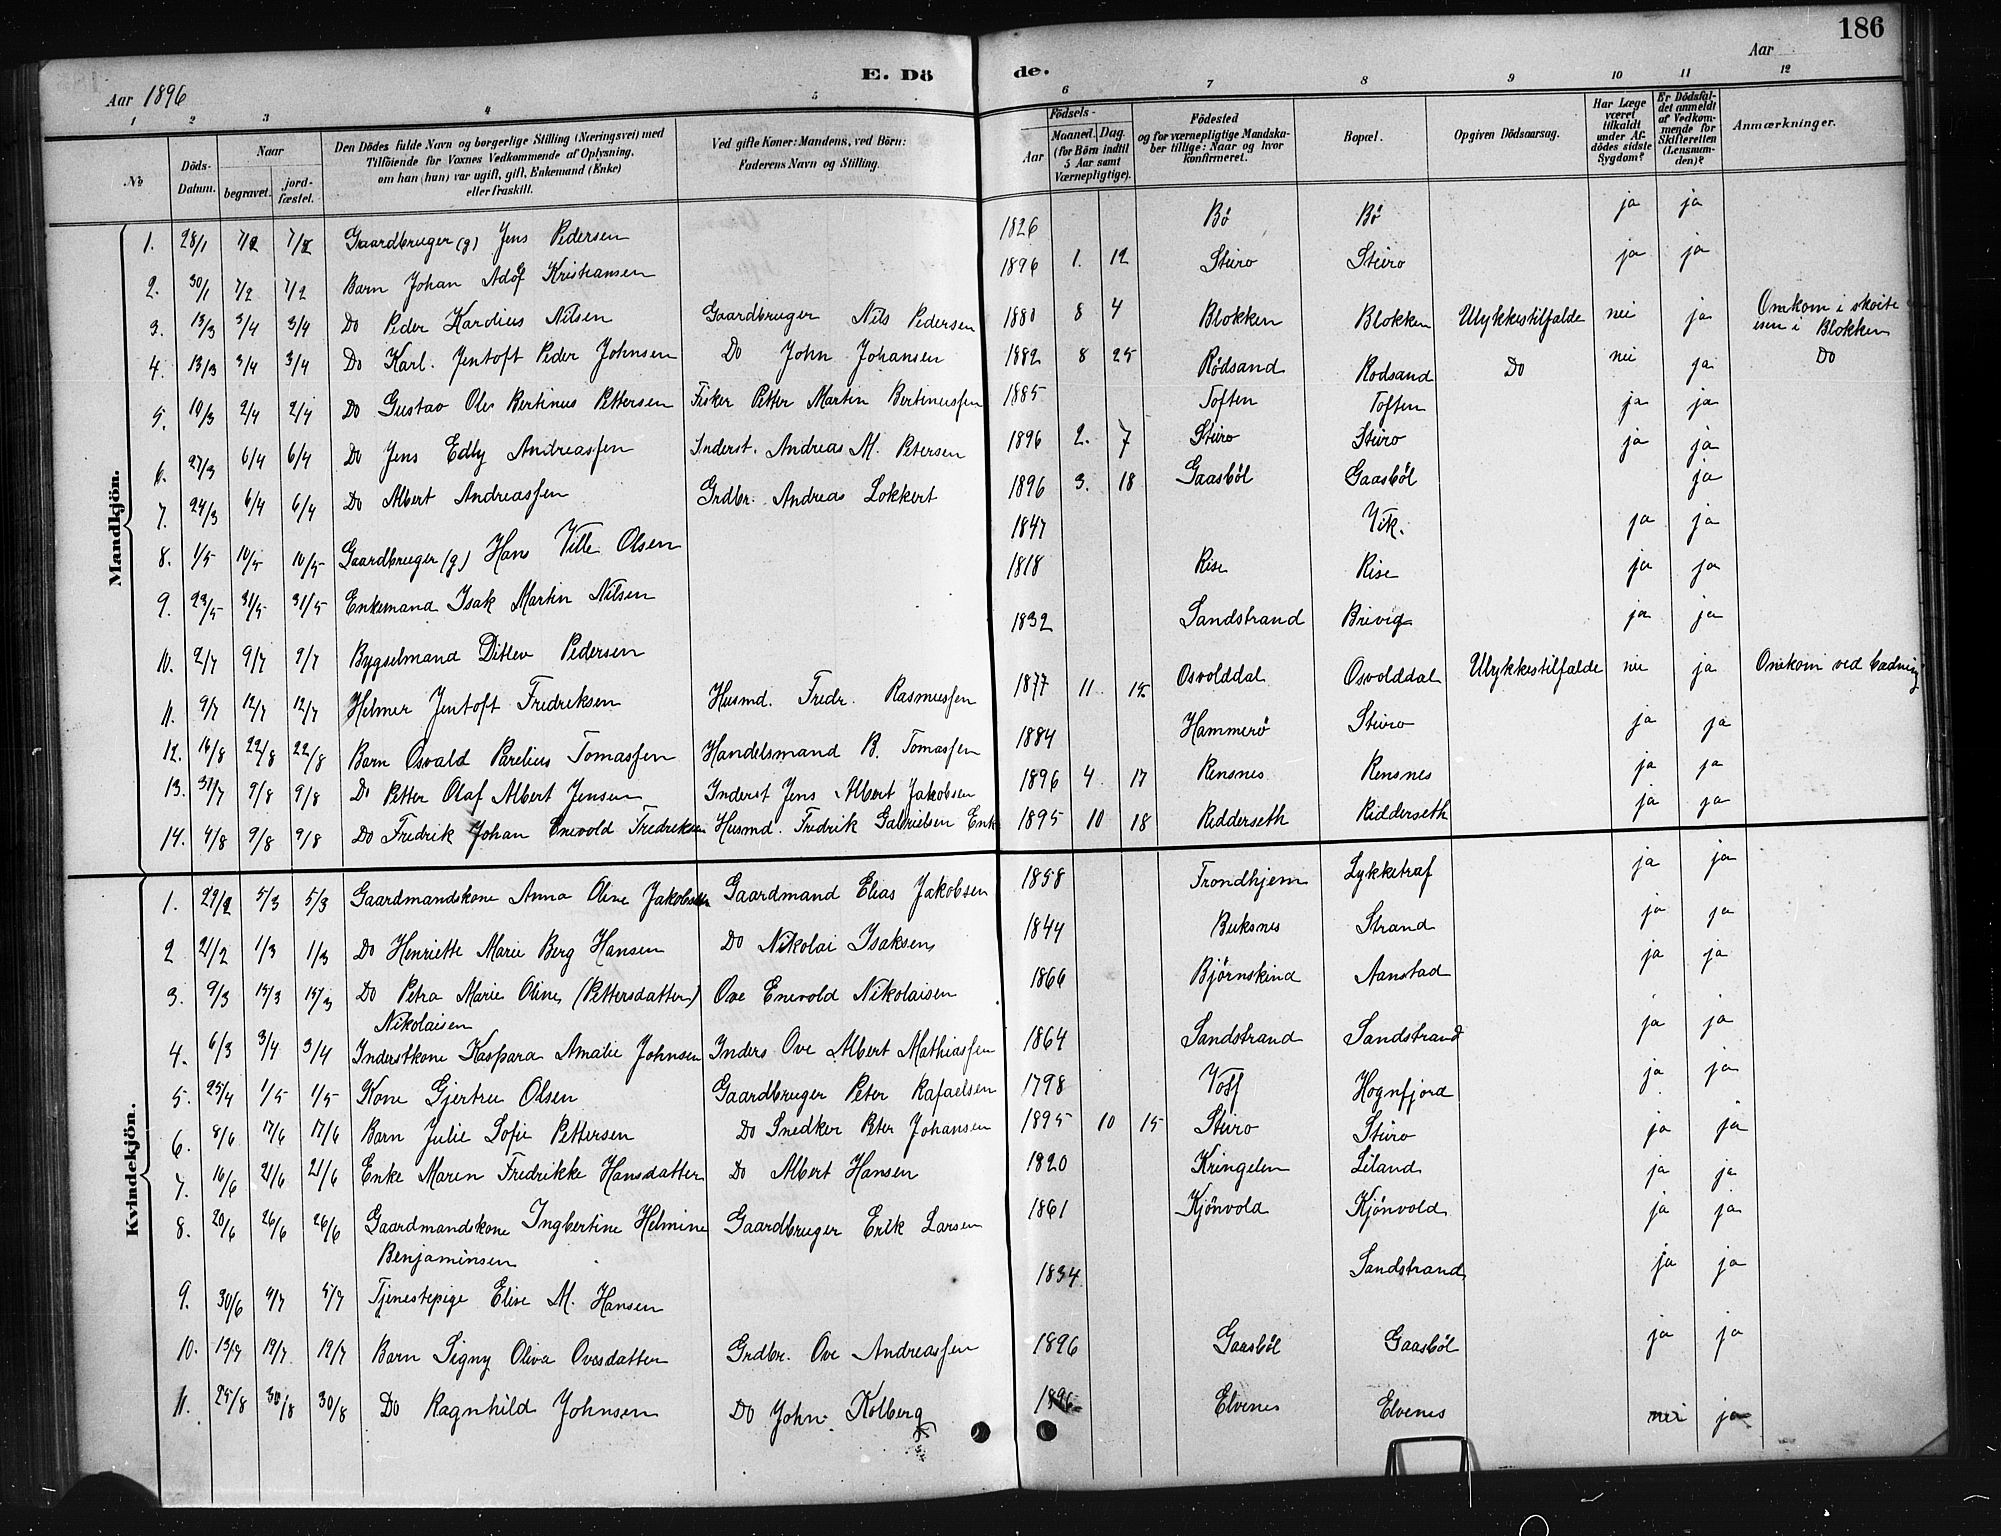 186
E. Döde.
Aar 1896
Aar
1 2 3 4 5 6 7 8 9 10 11 12
No
Döds-Datum.
Naar begravet. jord-fæstet.
Den Dödes fulde Navn og borgerlige Stilling (Næringsvei) med Tilföiende for Voxnes Vedkommende af Oplysning, om han (hun) var ugift, gift, Enkemand (Enke) eller fraskilt.
Ved gifte Koner: Mandens, ved Börn: Faderens Navn og Stilling.
Födsels- Aar Maaned. Dag. (for Börn indtil 5 Aar samt Værnepligtige).
Födested og for værnepligtige Mandskaber tillige: Naar og hvor konfirmeret.
Bopæl.
Opgiven Dödsaarsag.
Har Læge været tilkaldt under Afdödes sidste Sygdom?
Er Dödsfaldet anmeldt af Vedkommende for Skifteretten (Lensmanden)?
Anmærkninger.
Mandkjön.
1. 28/1 7/2 7/2 Gaardbruger (g) Jens Pedersen 1826 Bö Bö ja ja
2. 30/1 7/2 7/2 Barn Johan Adolf Kristiansen 1896 1. 12 Stüro Stüro ja ja
3. 13/3 3/4 3/4 Do Peder Kardius Nilsen Gaardbruger Nils Pedersen 1880 8 4 Blokken Blokken Ulykkestilfalde nei ja Omkom i skoite isen i Blokken
4. 13/3 3/4 3/4 Do Karl. Jentoft Peder Johnsen Do John Johansen 1882 8 25 Rødsand Rodsand Do nei ja Do
5. 10/3 2/4 2/4 Do Gustav Ole Bertinus Pettersen Fisker Petter Martin Bertinussen 1885 Toften Toften ja ja
6. 27/3 6/4 6/4 Do Jens Edly Andreassen Inderst. Andreas M. Petersen 1896 2. 7 Stüro Stüro ja ja
7. 24/3 6/4 6/4 Do Albert Andreassen Grdbr. Andreas Lokkert 1896 3. 18 Gaasböl Gaasböl ja
8. 1/5 10/5 10/5 Gaardbruger (g) Hans Ville Olsen 1847 Vik. ja ja
9. 23/5 31/5 31/5 Enkemand Isak Martin Nilsen 1818 Rise Rise ja ja
10. 2/7 9/7 9/7 Bygselmand Ditlev Pedersen 1832 Sandstrand Brevig ja ja
11. 9/7 12/7 12/7 Helmer Jentoft Fredriksen Husmd. Fredr. Rasmussen 1877 11. 15 Osvolddal Osvolddal Ulykkestilfalde nei ja Omkom ved badning
12. 16/8 22/8 22/8 Barn Osvald Parelius Tomassen Handelsmand B. Tomassen 1884 Hammerö Stüro ja ja
13. 31/7 9/8 9/8 Do Petter Olaf Albert Jensen Inderst Jens Albert Jakobsen 1896 4 17 Rensnes Rensnes ja ja
14. 4/8 9/8 9/8 Do Fredrik Johan Enevold Fredriksen Husmd. Fredrik Gabrielsen Enk 1895 10 18 Ridderseth Ridderseth ja ja
Kvindekjön.
1. 29/2 5/3 5/3 Gaardmandskone Anna Oline Jakobsen Gaardmand Elias Jakobsen 1858 Trondhjem Lykketraf ja ja
2 21/2 1/3 1/3 Do Henriette Marie Berg Hansen Do Nikolai Isaksen 1844 Buksnes Strand ja ja
3. 9/3 15/3 15/3 Do Petra Marie Oline (Pettersdatter) Ove Enevold Nikolaisen 1866 Björnskind Aanstad ja ja
Nikolaisen
4. 6/3 3/4 3/4 Inderstkone Kaspara Amalie Johnsen Inders Ove Albert Mathiassen 1864 Sandstrand Sandstrand ja ja
5. 25/4 1/5 1/5 Kone Gjertru Olsen Gaardbruger Peter Rafaelsen 1798 Voss Hognfjord ja ja
6. 8/6 17/6 17/6 Barn Julie Sofie Pettersen Do Snedker Peter Johansen 1895 10 15 Stüro Stüro ja ja
7. 16/6 21/6 21/6 Enke Maren Fredrikke Hansdatter Do Albert Hansen 1820 Kringelen Liland ja ja
8. 20/6 26/6 26/6 Gaardmandskone Ingbertine Helmine Gaardbruger Erik Larsen 1861 Kjönvold Kjönvold ja ja
Benjaminsen
9. 30/6 4/7 5/7 Tjenestepige Elise M. Hansen 1834 Sandstrand ja ja
10. 13/7 19/7 19/7 Barn Signy Oliva Ovesdatter Grdbr. Ove Andreassen 1896 Gaasböl Gaasböl ja ja
11. 25/8 30/8 30/8 Do Ragnhild Johnsen Do John Kolberg 1896 Elvenes Elvenes nei ja